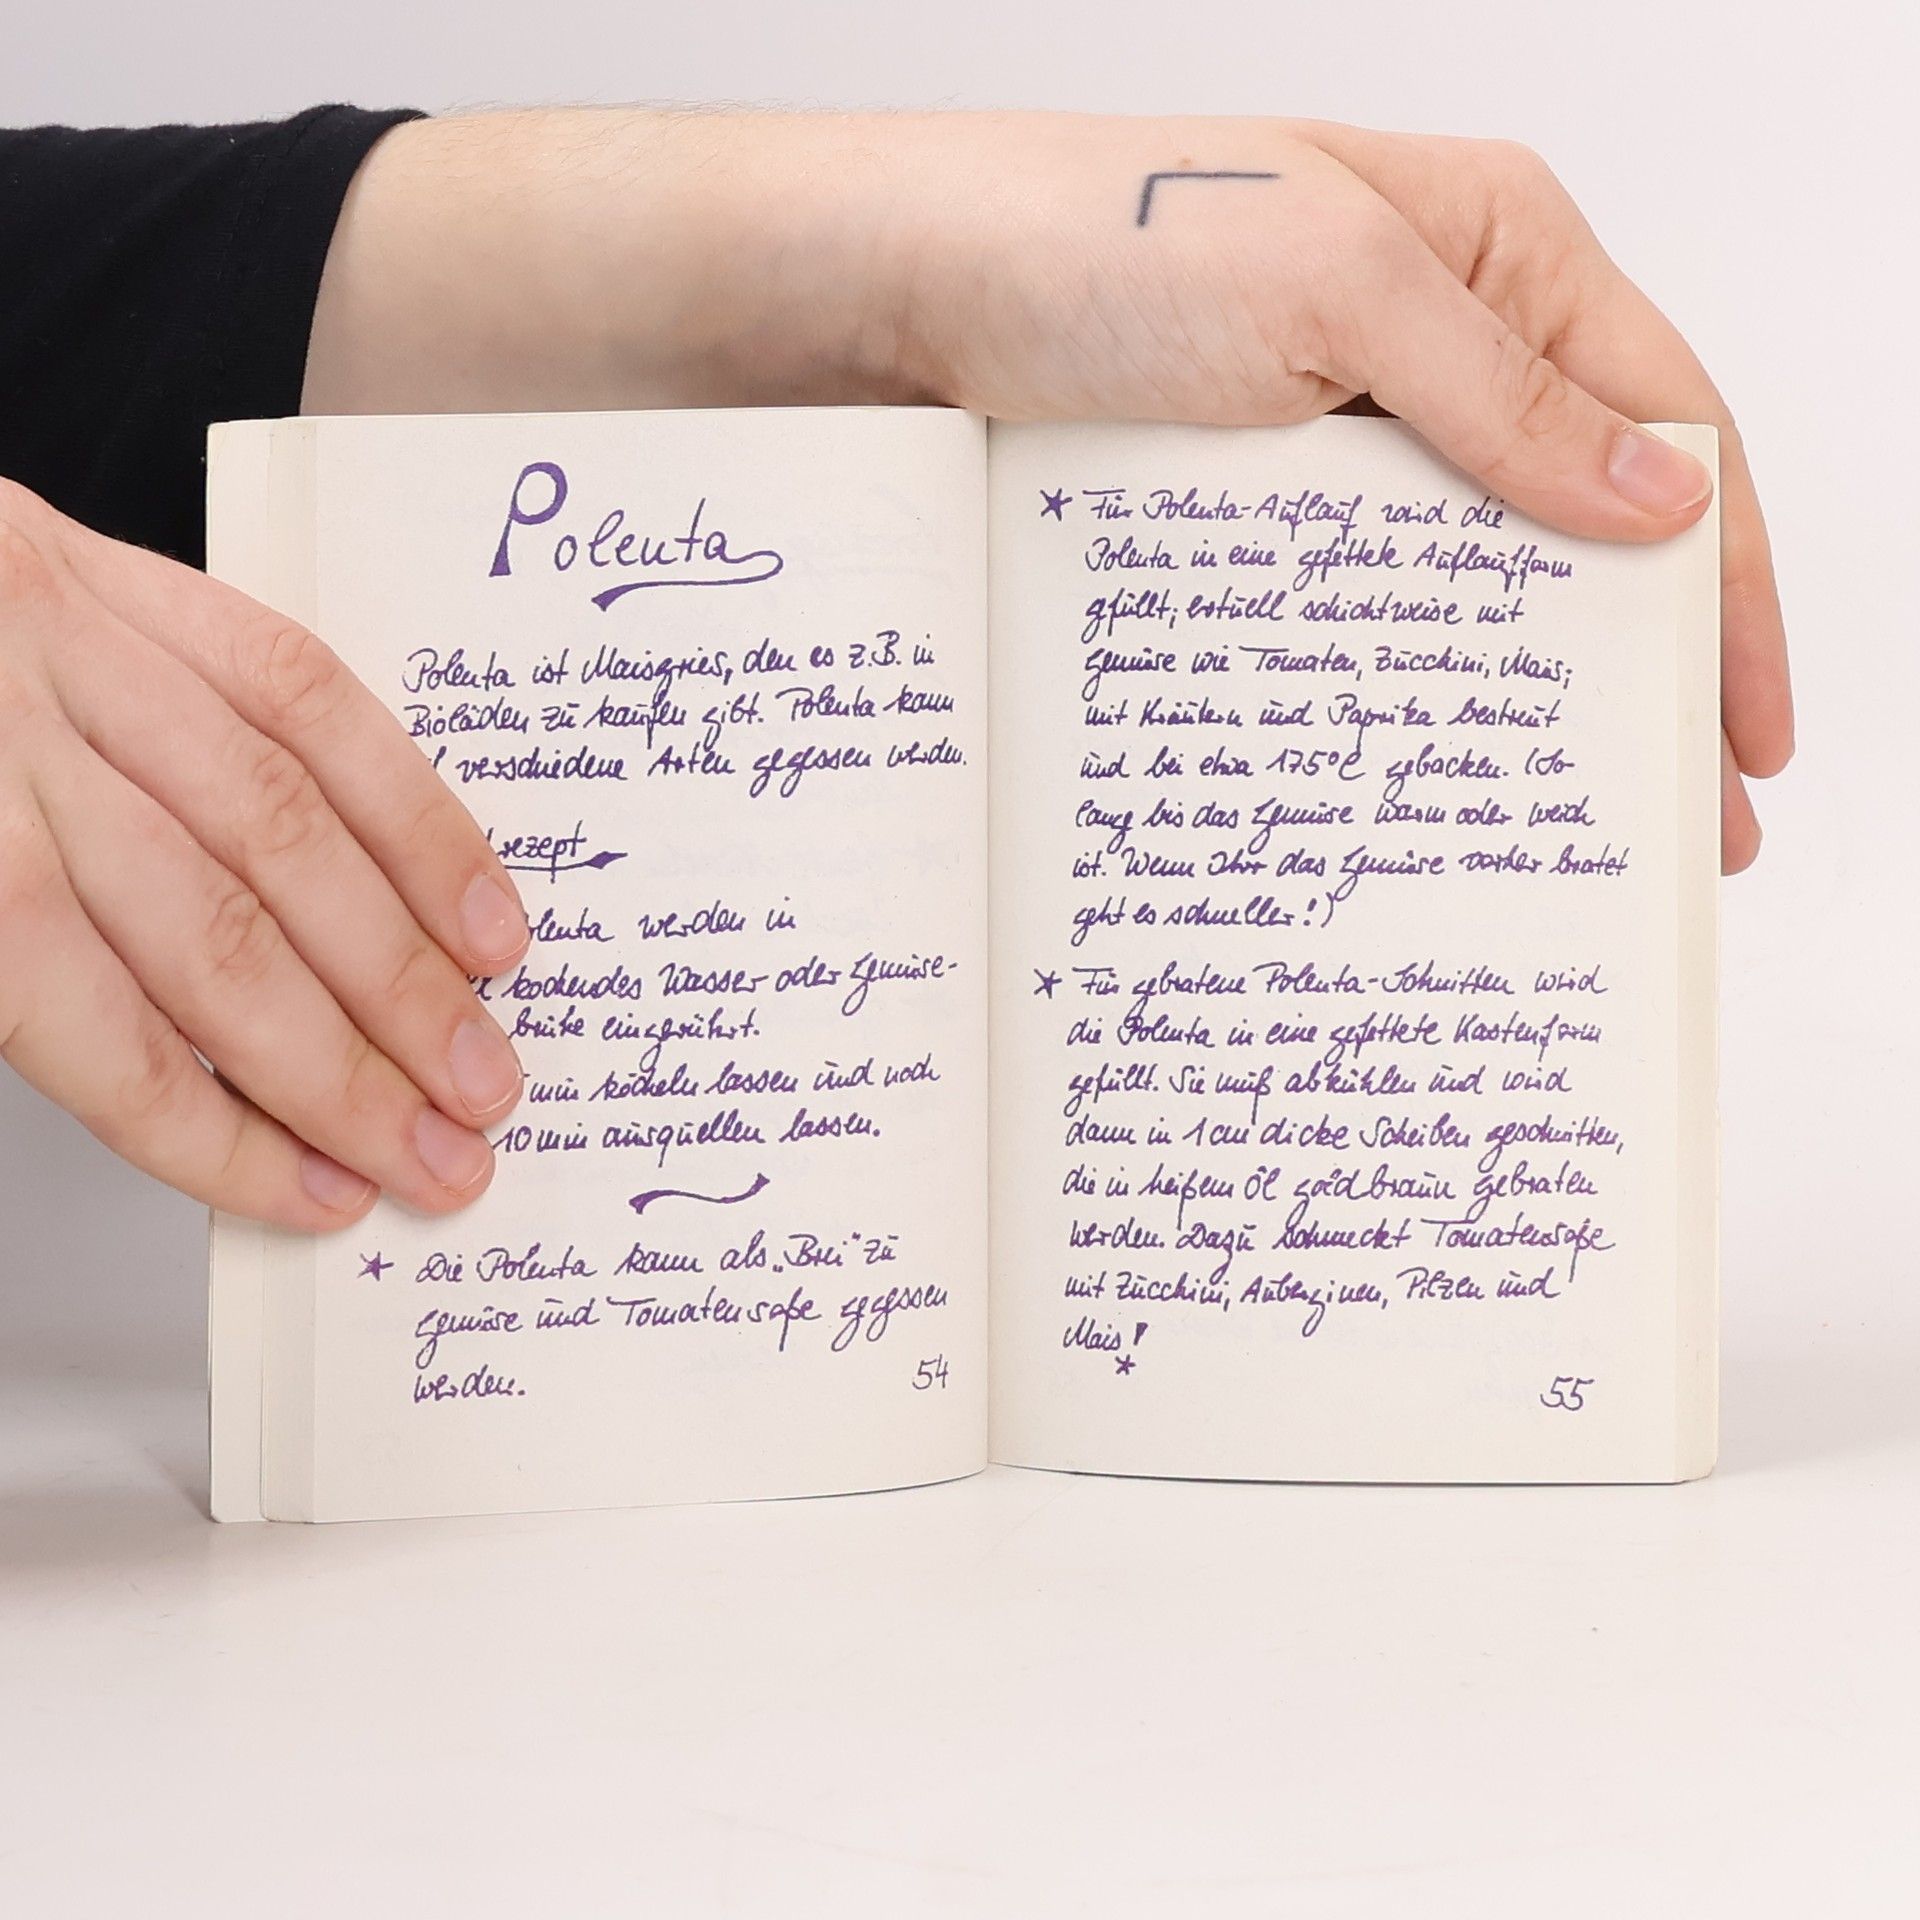 Polenta
Polenta ist Maisgries, den es z.B. in
Bioläden zu kaufen gibt. Polenta kann
verschiedene Arten gegessen werden.
rezept
olenta werden in
kochendes Wasser oder Gemüse-
brühe eingerührt.
min köcheln lassen und noch
10 min ausquellen lassen.
* Die Polenta kann als „Brei" zu
Gemüse und Tomatensoße gegessen
werden.
54
* Für Polenta-Auflauf wird die
Polenta in eine gefettete Auflaufform
gefüllt; evtuell schichtweise mit
Gemüse wie Tomaten, Zucchini, Mais;
mit Kräutern und Paprika bestreut
und bei etwa 175°C gebacken. (So-
lang bis das Gemüse warm oder weich
ist. Wenn Ihr das Gemüse vorher bratet
geht es schneller!)
* Für gebratene Polenta-Schnitten wird
die Polenta in eine gefettete Kastenform
gefüllt. Sie muß abkühlen und wird
dann in 1cm dicke Scheiben geschnitten,
die in heißem Öl goldbraun gebraten
werden. Dazu schmeckt Tomatensoße
mit Zucchini, Auberginen, Pilzen und
Mais!
*
55